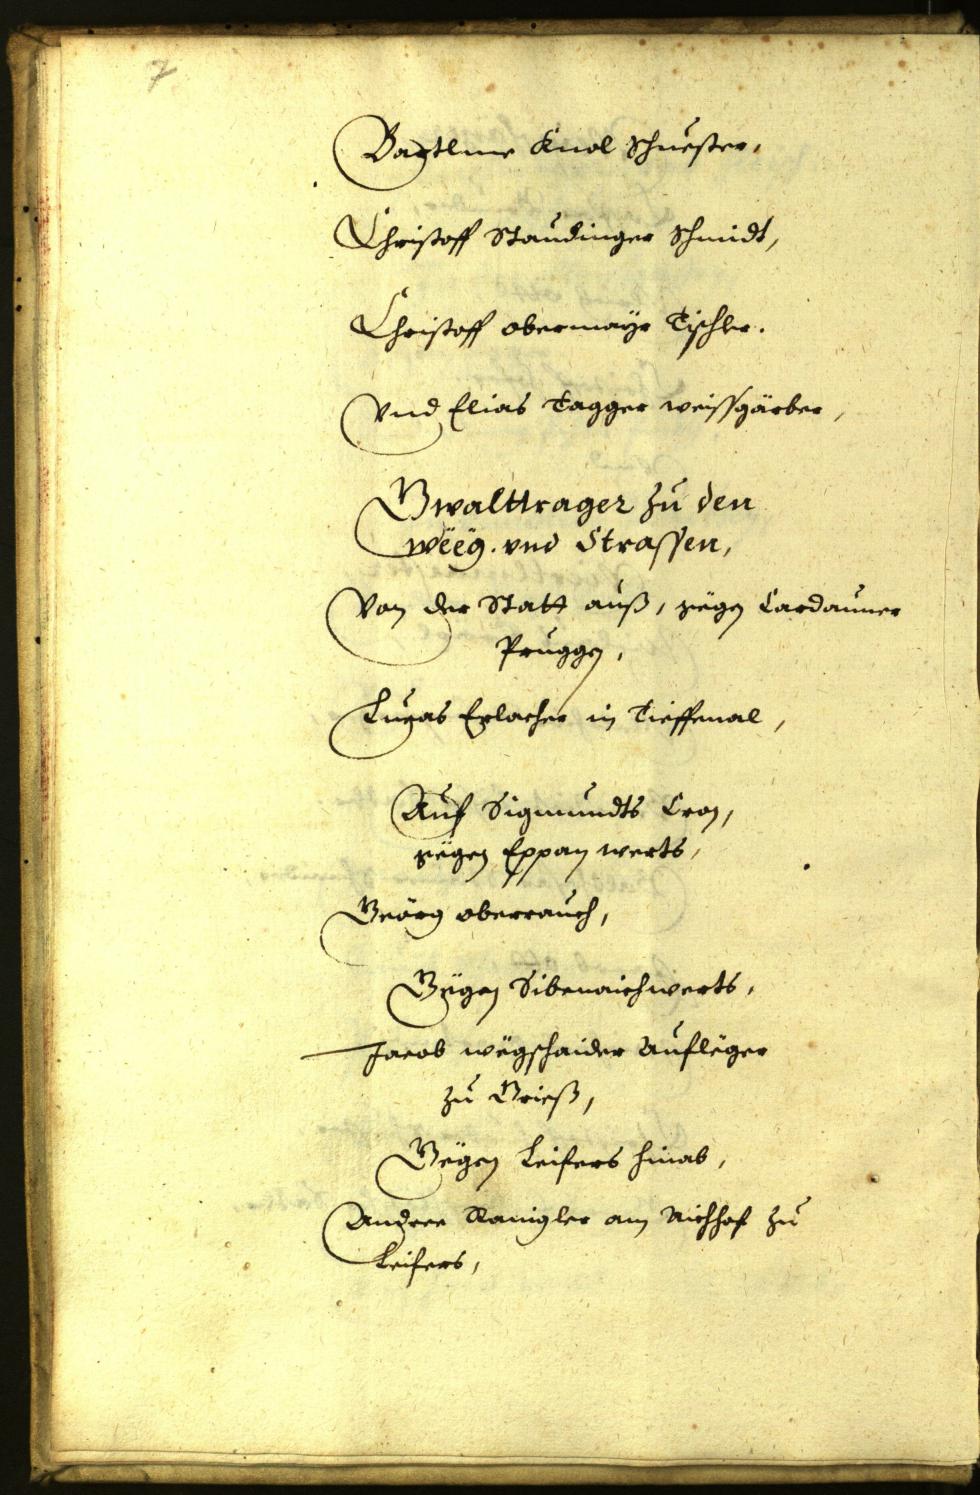 7
Bartlme Knol Schuester,
Christoff Staudinger Schmidt,
Christoff obermayr Tischler.
Vnd Elias Tagger weissgärber,
Gwalttrager zu den
wëëg. vnd Strassen,
Von der Statt auß, gëgen Cardauner
Pruggen,
Lucas Erlacher in Tieffenal,
Auf Sigmundts Cron,
gëgen Eppan werts,
Geörg oberrauch,
Gëgen Sibenaichwerts,
Jacob wëgschaider Auflëger
zu Grieß,
Gëgen Leifers hinab,
Andree Ranigler am Aichhof zu
Leifers,